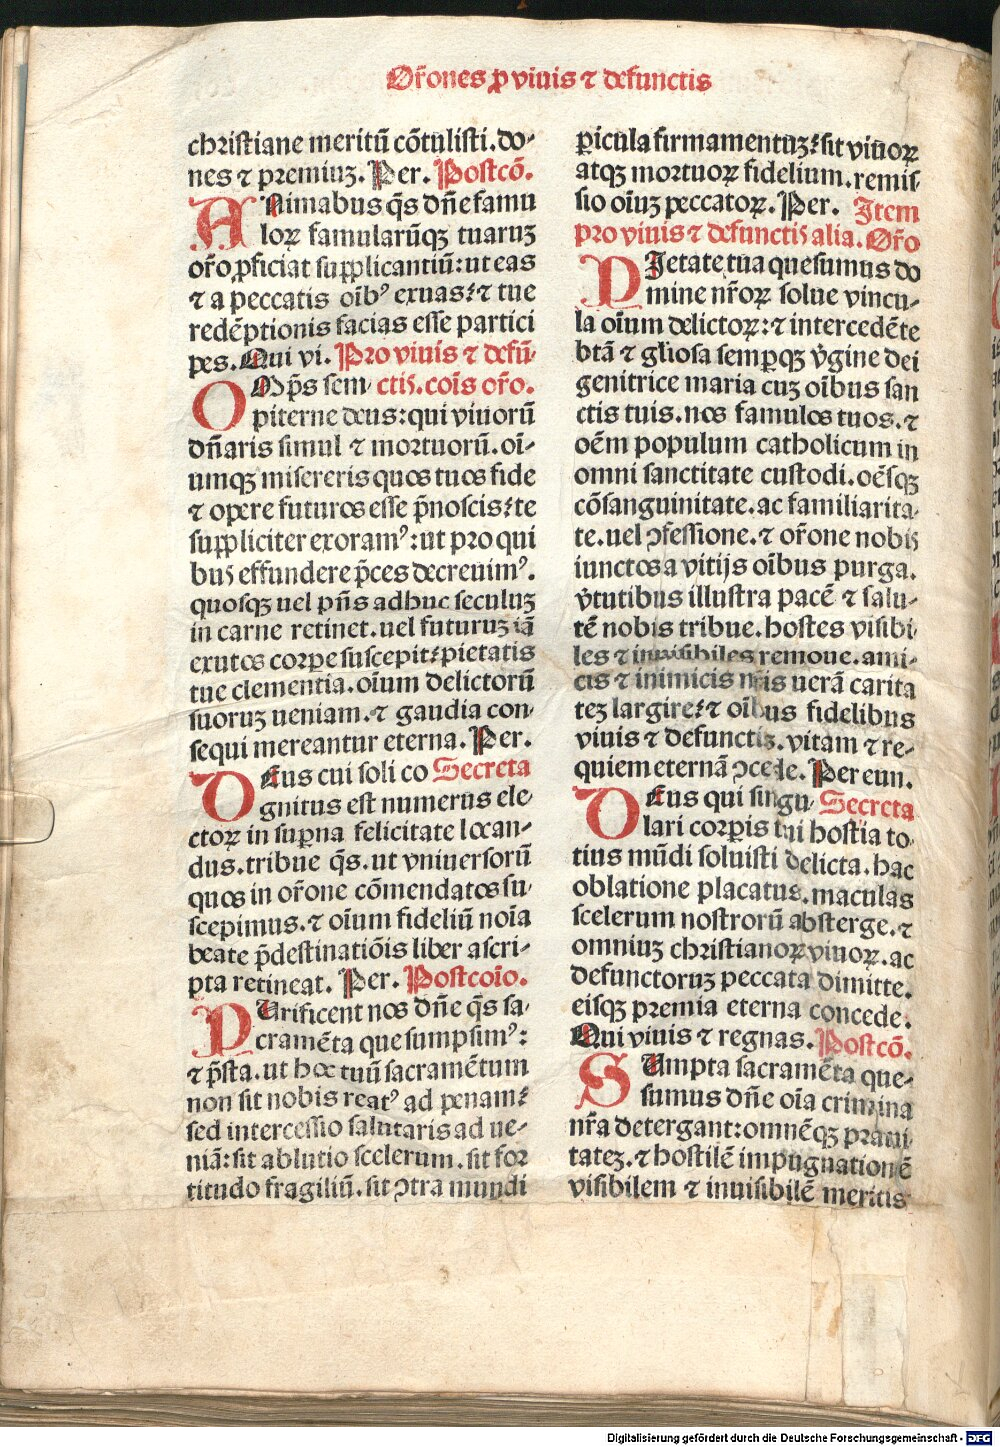 Or̃ones ꝓ viuis ⁊ defunctis
christiane meritū cōtulisti. do-
nes ⁊ premiuꝫ. Per. Postcō.
ANimabus q̄s dn̄e famu
loꝝ famularūqꝫ tuaruꝫ
or̃o ꝓficiat supplicantiū: ut eas
⁊ a peccatis oībꝰ exuas: ⁊ tue
redēptionis facias esse partici
pes. Qui vi. Pro viuis ⁊ defū-
OMp̄s sem- ctis. cōis or̃o.
piterne deus: qui viuorū
dn̄aris simul ⁊ mortuorū. oī-
umqꝫ misereris quos tuos fide
⁊ opere futuros esse p̄noscis: te
suppliciter exoramꝰ: ut pro qui
bus effundere p̄ces decreuimꝰ.
quosqꝫ uel pn̄s adhuc seculuꝫ
in carne retinet. uel futuruꝫ iā
exutos corpe suscepit: pietatis
tue clementia. oīum delictorū
suoruꝫ ueniam. ⁊ gaudia con-
sequi mereantur eterna. Per.
DEus cui soli co Secreta
gnitus est numerus ele-
ctoꝝ in suꝑna felicitate locan-
dus. tribue q̄s. ut vniuersorū
quos in or̃one cōmendatos su-
scepimus. ⁊ oīum fideliū noīa
beate p̄destinatiōis liber ascri-
pta retineat. Per. Postcoīo.
PUrificent nos dn̄e q̄s sa-
cramēta que sumpsimꝰ:
⁊ p̄sta. ut hoc tuū sacramētum
non sit nobis reatꝰ ad penam:
sed intercessio salutaris ad ue-
niā: sit ablutio scelerum. sit for
titudo fragiliū. sit ↄtra mundi
ꝑicula firmamentuꝫ: sit viuoꝝ
atqꝫ mortuoꝝ fidelium. remis-
sio oīuꝫ peccatoꝝ. Per. Item
pro viuis ⁊ defunctis alia. Or̃o
PIetate tua quesumus do
mine nr̄oꝝ solue vincu-
la oīum delictoꝝ: ⁊ intercedēte
btā ⁊ gl̄iosa semꝑqꝫ v̄gine dei
genitrice maria cuꝫ oībus san
ctis tuis. nos famulos tuos. ⁊
oēm populum catholicum in
omni sanctitate custodi. oēsqꝫ
cōsanguinitate. ac familiarita-
te. uel ↄfessione. ⁊ or̃one nobis
iunctos a vitijs oībus purga.
v̄tutibus illustra pacē ⁊ salu-
tē nobis tribue. hostes visibi-
les ⁊ inuisibiles remoue. ami-
cis ⁊ inimicis nr̄is uerā carita
teꝫ largire: ⁊ oībus fidelibus
viuis ⁊ defunctis. vitam ⁊ re-
quiem eternā ↄcede. Per eun.
DEus qui singu- Secreta
lari corꝑis tui hostia to-
tius mūdi soluisti delicta. hac
oblatione placatus. maculas
scelerum nostrorū absterge. ⁊
omniuꝫ christianoꝝ viuoꝝ. ac
defunctoruꝫ peccata dimitte.
eisqꝫ premia eterna concede.
Qui viuis ⁊ regnas. Postcō.
SUmpta sacramēta que-
sumus dn̄e oīa crimina
nr̄a detergant: omnēqꝫ praui-
tateꝫ. ⁊ hostilē impugnationē
visibilem ⁊ inuisibilē meritis
Digitalisierung gefördert durch die Deutsche Forschungsgemeinschaft - DFG